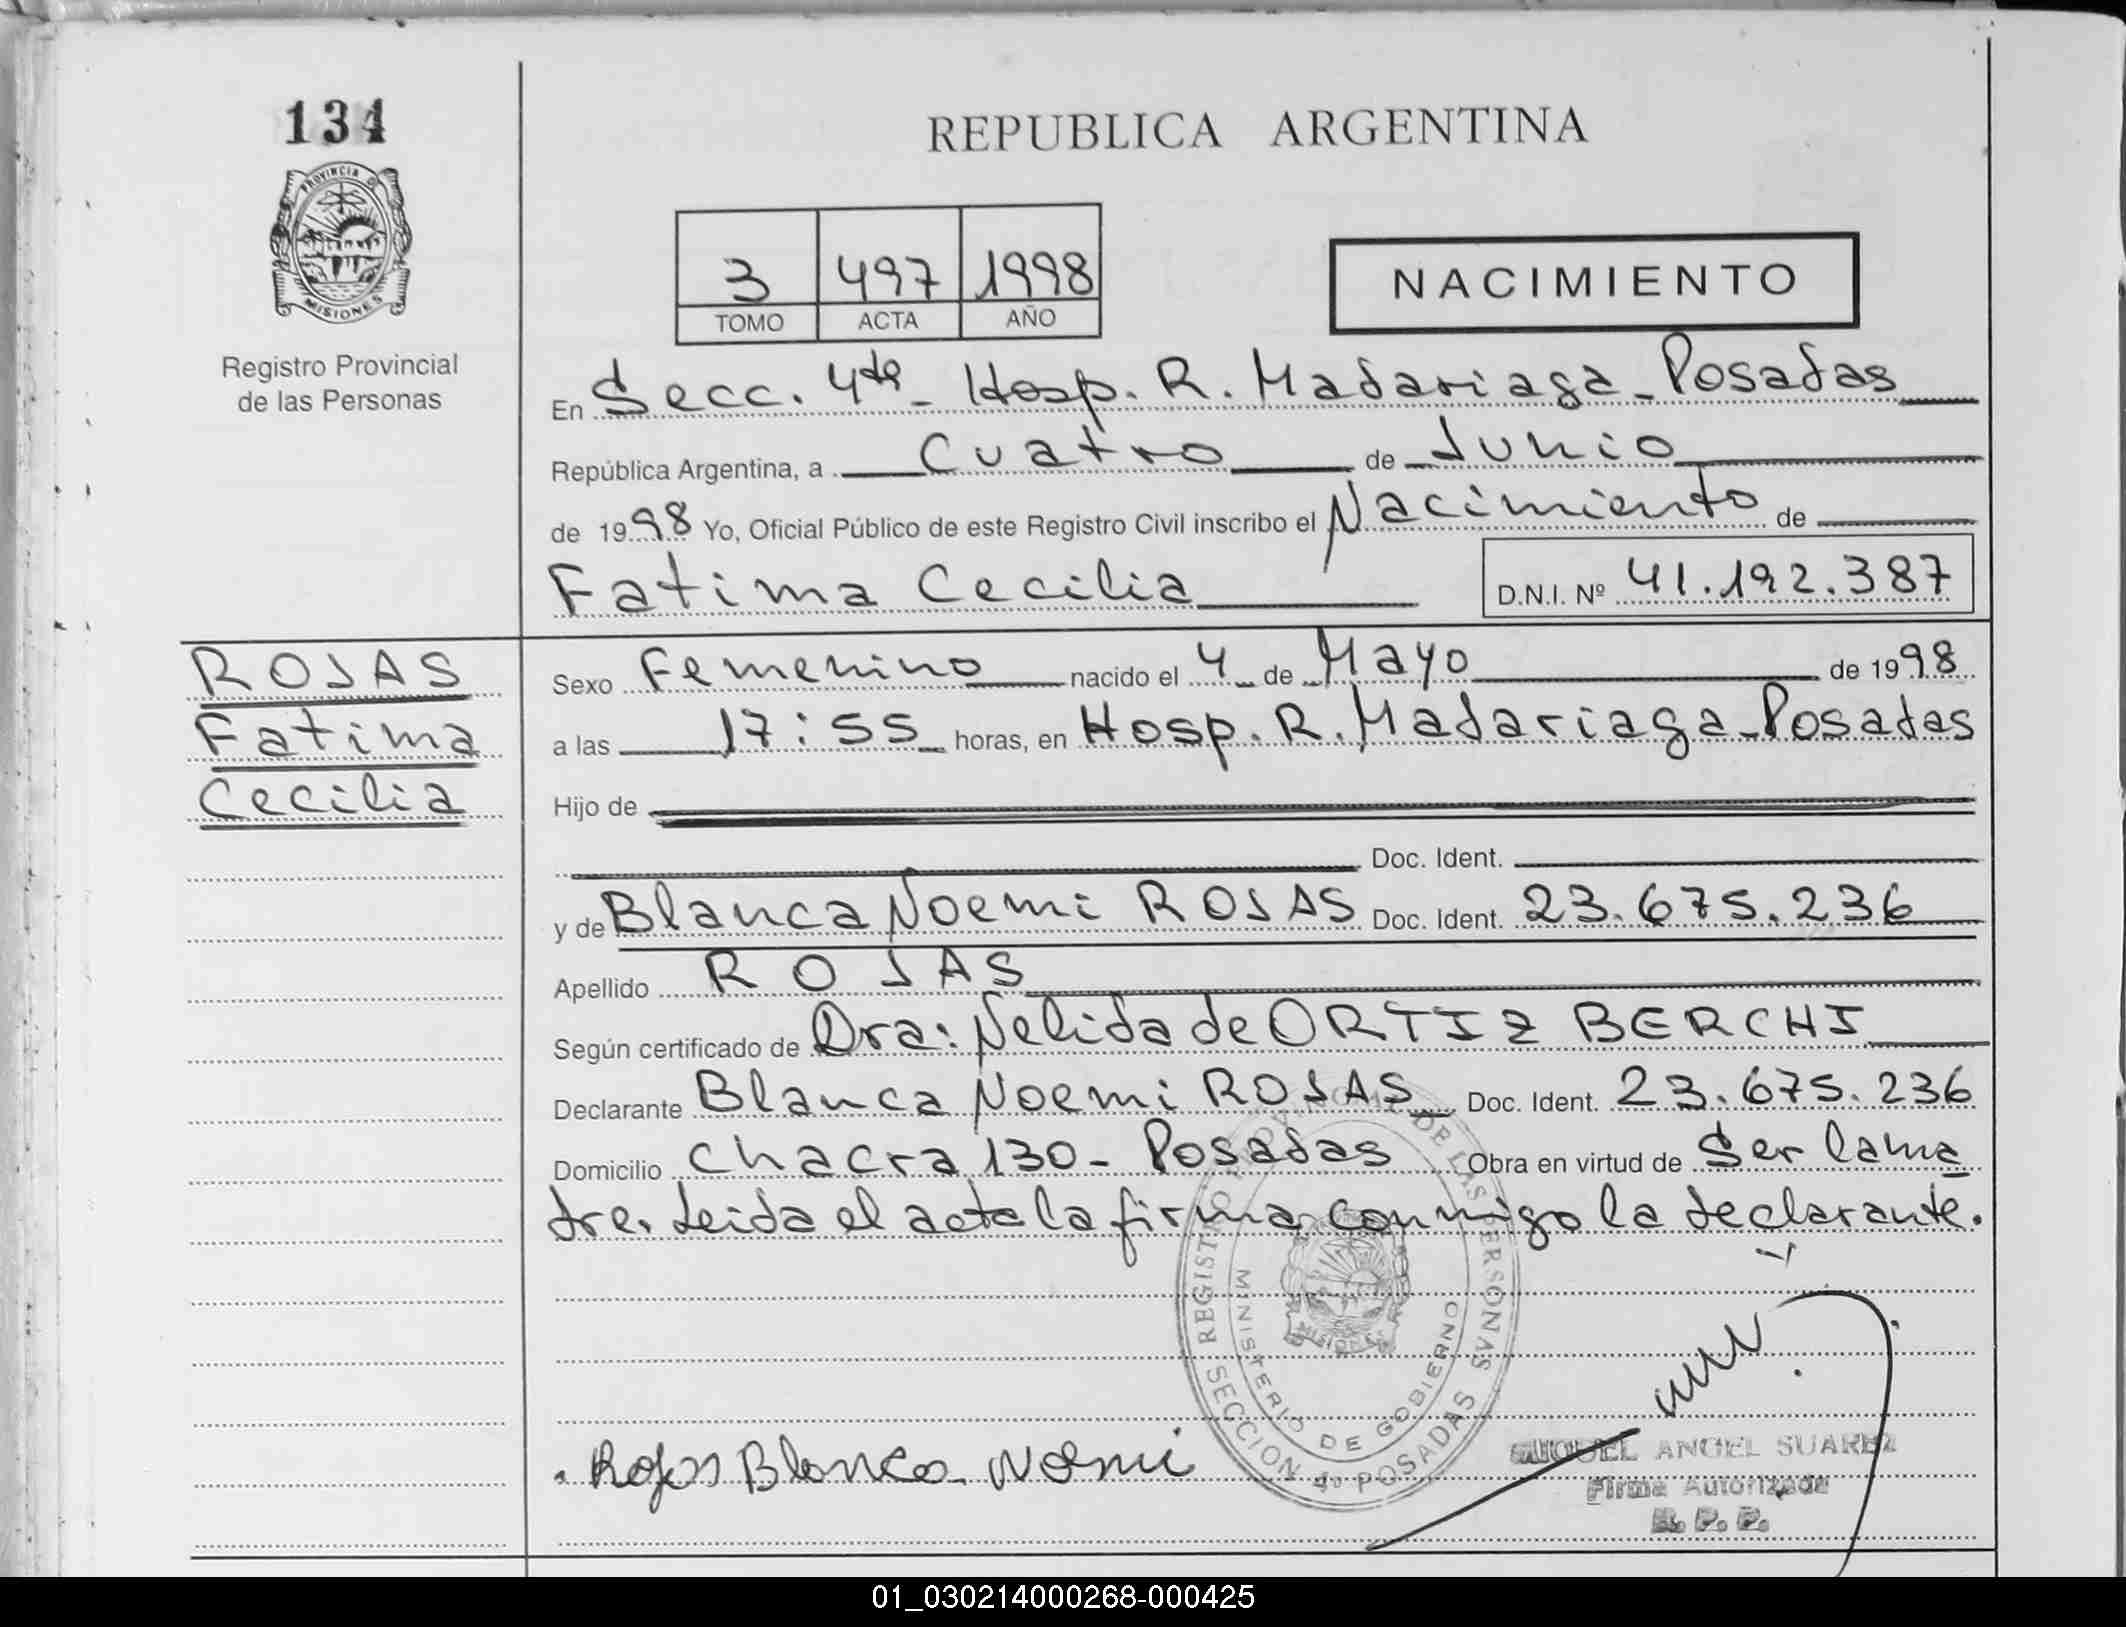 134
PROVINCIA D
MISIONES
Registro Provincial
de las Personas
REPUBLICA ARGENTINA
3 497 1998
TOMO ACTA AÑO
NACIMIENTO
En Secc. 4ta - Hosp. R. Madariaga - Posadas
República Argentina, a Cuatro de Junio
de 1998 Yo, Oficial Público de este Registro Civil inscribo el Nacimiento de
Fatima Cecilia D.N.I. Nº 41.192.387
ROJAS
Fatima
Cecilia
Sexo Femenino nacido el 4 de Mayo de 1998
a las 17:55 horas, en Hosp. R. Madariaga - Posadas
Hijo de
Doc. Ident.
y de Blanca Noemi ROJAS Doc. Ident. 23.675.236
Apellido ROJAS
Según certificado de Dra: Nelida de ORTIZ BERCHI
Declarante Blanca Noemi ROJAS Doc. Ident. 23.675.236
Domicilio Chacra 130 - Posadas Obra en virtud de Ser la ma
dre. Leida el acta la firma conmigo la declarante.
REGISTRO PROVINCIAL DE LAS PERSONAS
MINISTERIO DE GOBIERNO
MISIONES
SECCION 4º POSADAS
Rojas Blanca Noemi
MIGUEL ANGEL SUAREZ
Firma Autorizada
R. P. P.
01_030214000268-000425